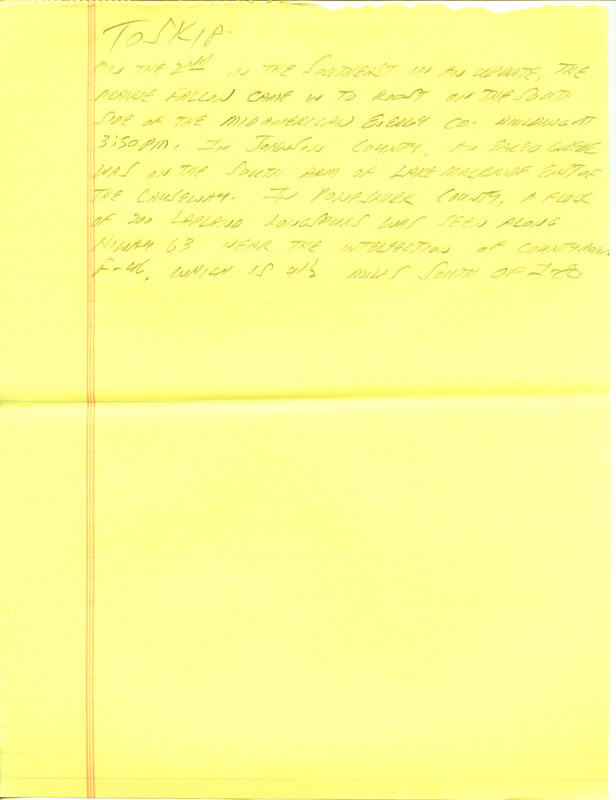 TO SKIP.
ON THE 2ND IN THE SOUTHEAST IN AN UPDATE, THE
PRAIRIE FALCON CAME IN TO ROOST ON THE SOUTH
SIDE OF THE MIDAMERICAN ENERGY CO. BUILDING AT
3:50 PM. IN JOHNSON COUNTY, AN EARED GREBE
WAS ON THE SOUTH ARM OF LAKE MACBRIDE EAST OF
THE CAUSEWAY. IN POWESHIEK COUNTY, A FLOCK
OF 200 LAPLAND LONGSPURS WAS SEEN ALONG
HIWAY 63 NEAR THE INTERSECTION OF COUNTY ROAD
F-46, WHICH IS 4 1/2 MILES SOUTH OF I-80.